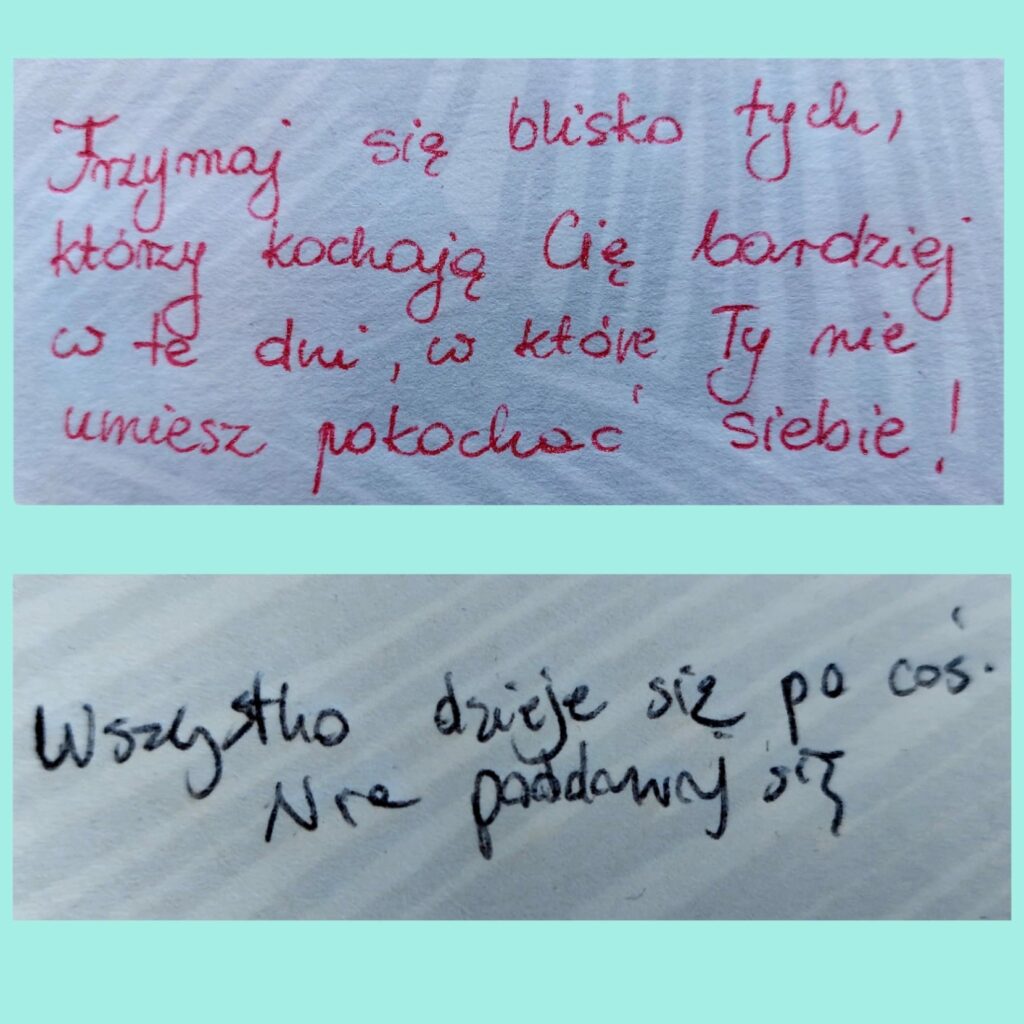 Trzymaj się blisko tych,
którzy kochają Cię bardziej
w te dni, w które Ty nie
umiesz pokochać siebie!
Wszystko dzieje się po coś.
Nie poddawaj się